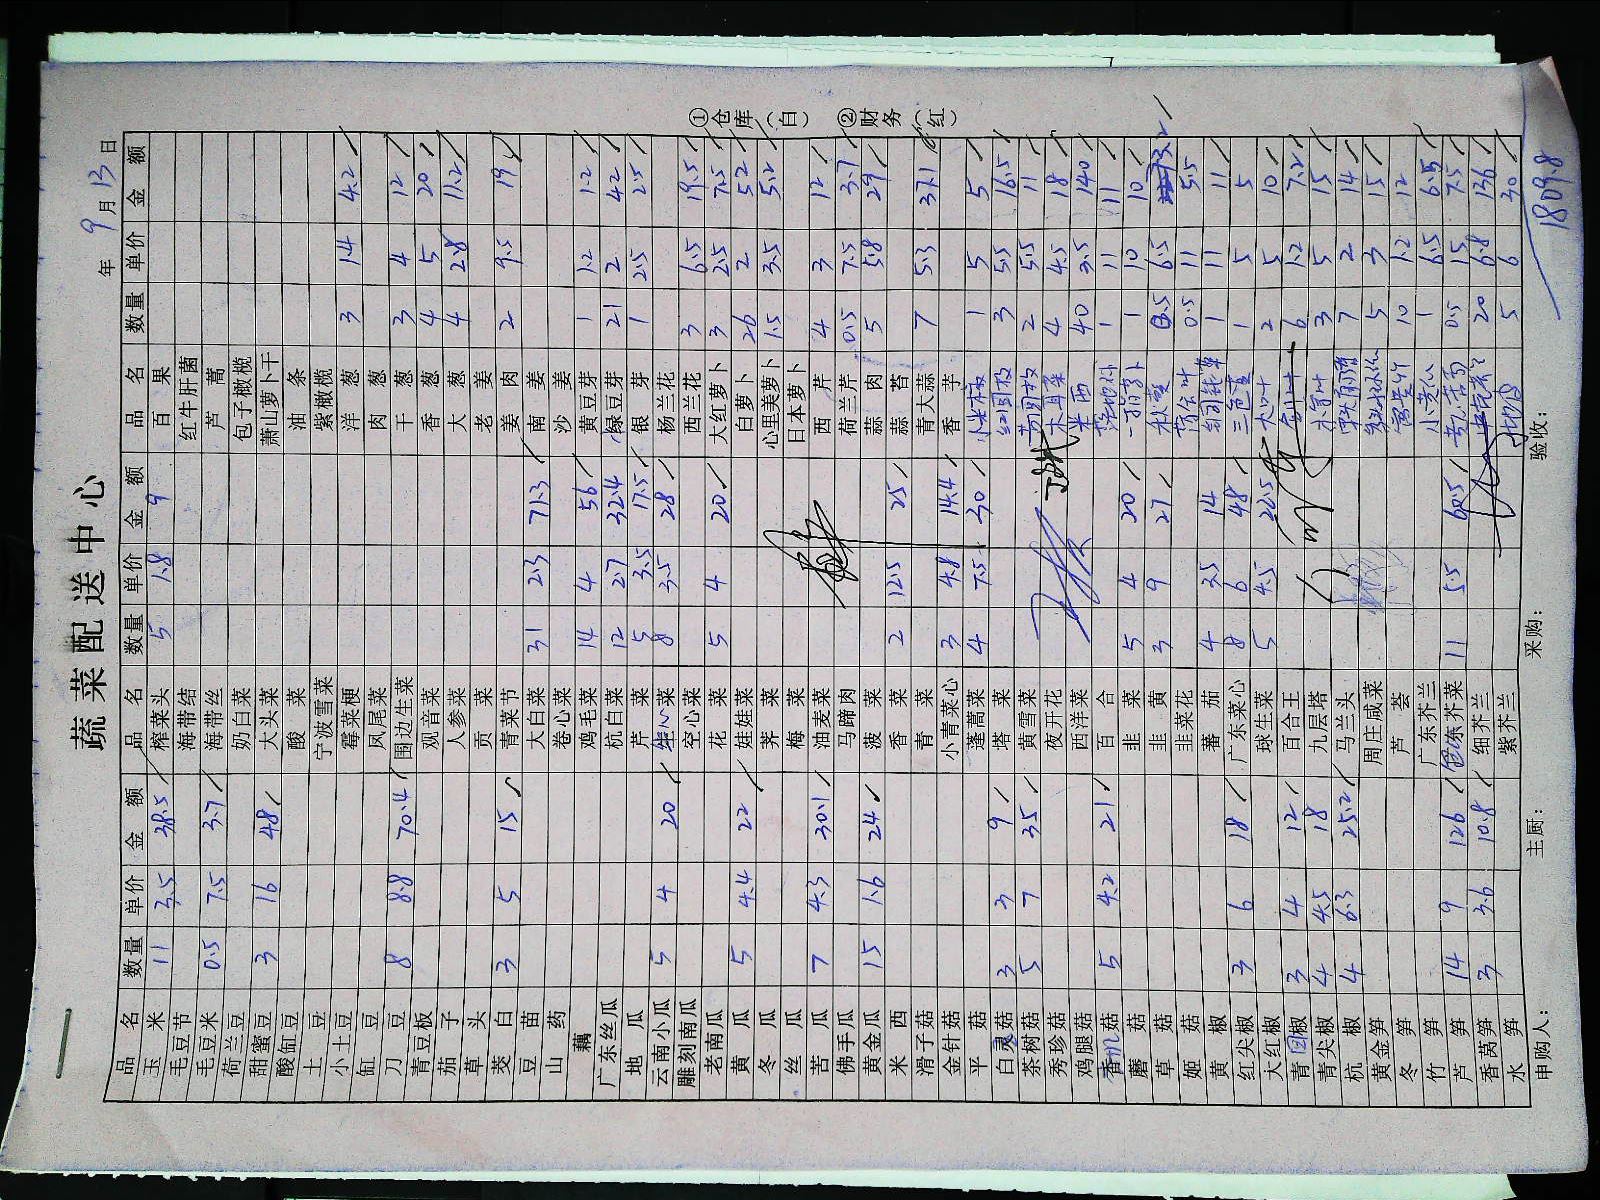 蔬菜配送中心
年 9 月 13 日
品名 数量 单价 金额 品名 数量 单价 金额 品名 数量 单价 金额
玉米 11 3.5 38.5 榨菜头 5 1.8 9 百果
毛豆节 海带结 红牛肝菌
毛豆米 0.5 7.5 3.7 海带丝 芦蒿
荷兰豆 奶白菜 包子橄榄
甜蜜豆 3 16 48 大头菜 萧山萝卜干
酸缸豆 酸菜 油条
土豆 宁波雪菜 紫橄榄
小土豆 霉菜梗 洋葱 3 1.4 4.2
缸豆 凤尾菜 肉葱
刀豆 8 8.8 70.4 围边生菜 干葱 3 4 12
青豆板 观音菜 香葱 4 5 20
茄子 人参菜 大葱 4 2.8 11.2
草头 贡菜 老姜
茭白 3 5 15 青菜节 姜肉 2 9.5 19
豆苗 大白菜 31 2.3 71.3 南姜
山药 卷心菜 沙姜
藕 鸡毛菜 14 4 56 黄豆芽 1 1.2 1.2
广东丝瓜 杭白菜 12 2.7 32.4 绿豆芽 21 2 42
地瓜 芹菜 5 3.5 17.5 银芽 1 2.5 2.5
云南小瓜 5 4 20 生心菜 8 3.5 28 杨兰花
雕刻南瓜 空心菜 西兰花 3 6.5 19.5
老南瓜 花菜 5 4 20 大红萝卜 3 2.5 7.5
黄瓜 5 4.4 22 娃娃菜 白萝卜 26 2 52
冬瓜 荠菜 心里美萝卜 1.5 3.5 5.2
丝瓜 梅菜 日本萝卜
苦瓜 7 4.3 30.1 油麦菜 西芹 4 3 12
佛手瓜 马蹄肉 荷兰芹 0.5 7.5 3.7
黄金瓜 15 1.6 24 菠菜 蒜肉 5 5.8 29
米西 香菜 2 12.5 25 蒜苔
滑子菇 青菜 青大蒜 7 5.3 37.1
金针菇 小青菜心 3 4.8 14.4 香芋
平菇 蓬蒿菜 4 7.5 30 小米椒 1 5 5
白灵菇 3 3 9 塔菜 红圆椒 3 5.5 16.5
茶树菇 5 7 35 黄雪菜 黄圆椒 2 5.5 11
秀珍菇 夜开花 木耳菜 4 4.5 18
鸡腿菇 西洋菜 米西 40 3.5 140
香菇 5 4.2 21 百合 1 11 11
蘑菇 韭菜 5 4 20 一指萝卜 1 10 10
草菇 韭黄 3 9 27 秋葵 0.5 6.5 3.2
姬菇 韭菜花 0.5 11 5.5
黄椒 蕃茄 4 3.5 14 1 11 11
红尖椒 3 6 18 广东菜心 8 6 48 三色堇 1 5 5
大红椒 球生菜 5 4.5 22.5 大叶 2 5 10
青团椒 3 4 12 百合王 6 1.2 7.2
青尖椒 4 4.5 18 九层塔 3 5 15
杭椒 4 6.3 25.2 马兰头 7 2 14
黄金笋 周庄咸菜 5 3 15
冬笋 芦荟 10 1.2 12
竹笋 广东芥兰 1 6.5 6.5
芦笋 14 9 126 广东芥菜 11 5.5 60.5 0.5 15 7.5
香莴笋 3 3.6 10.8 细芥兰 20 6.8 136
水笋 紫芥兰 5 6 30
申购人： 主厨： 采购： 验收： 1809.8
①仓库（白） ②财务（红）